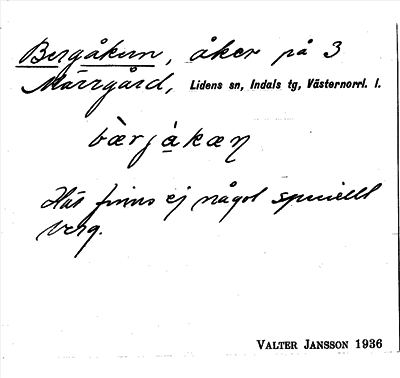 Bergåkern, åker på 3
Märrgård, Lidens sn, Indals tg, Västernorrl. l.
bæ̀rjàkæɳ
Här finns ej något speciellt
berg.
VALTER JANSSON 1936